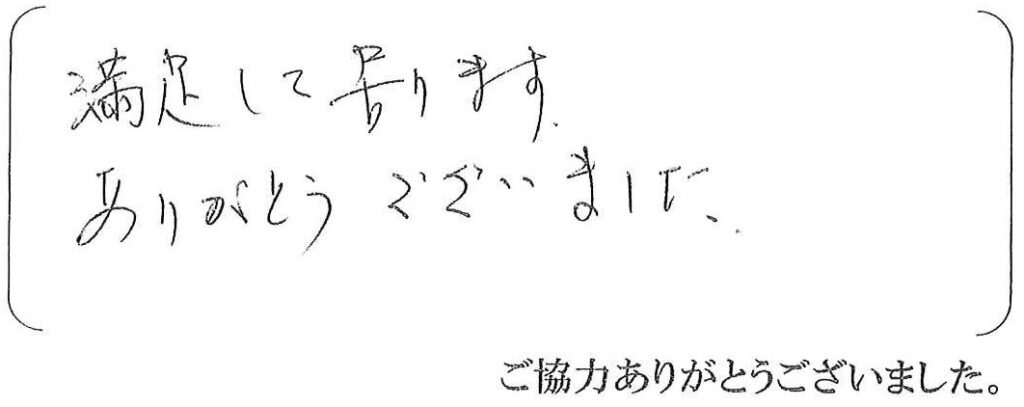 満足して居ります.
ありがとうございました.
ご協力ありがとうございました。